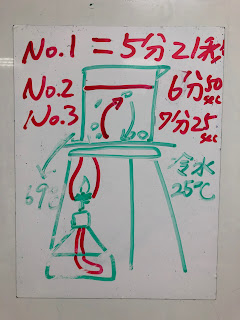 No.1 = 5分21秒
No.2 6分50 sec
No.3 7分25 sec
冷水
25℃
69℃